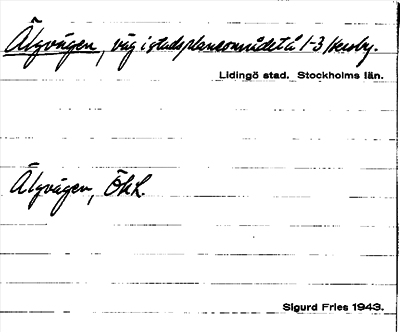 Älgvägen, väg i stadsplaneområdet å 1-3 Hersby.
Lidingö stad. Stockholms län.
Älgvägen, ÖhL.
Sigurd Fries 1943.